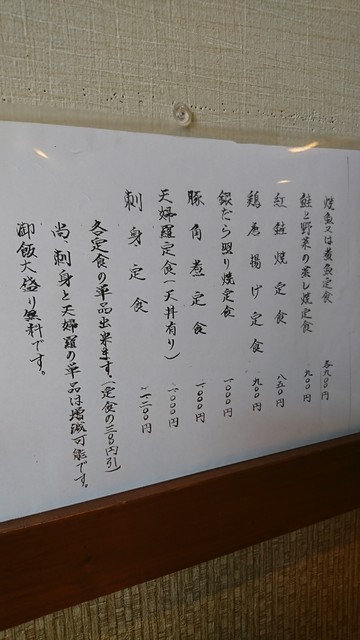 焼魚又は煮魚定食 各九五〇円
鮭と野菜の蒸し焼定食 九〇〇円
紅鮭焼定食 八五〇円
鶏唐揚げ定食 九〇〇円
銀だら照り焼定食 一、〇〇〇円
豚角煮定食 一、〇〇〇円
天婦羅定食(天丼有り) 一、〇〇〇円
刺身定食 一、二〇〇円
各定食の単品出来ます。(定食の二〇〇円引)
尚、刺身と天婦羅の単品は増減可能です。
御飯大盛り無料です。